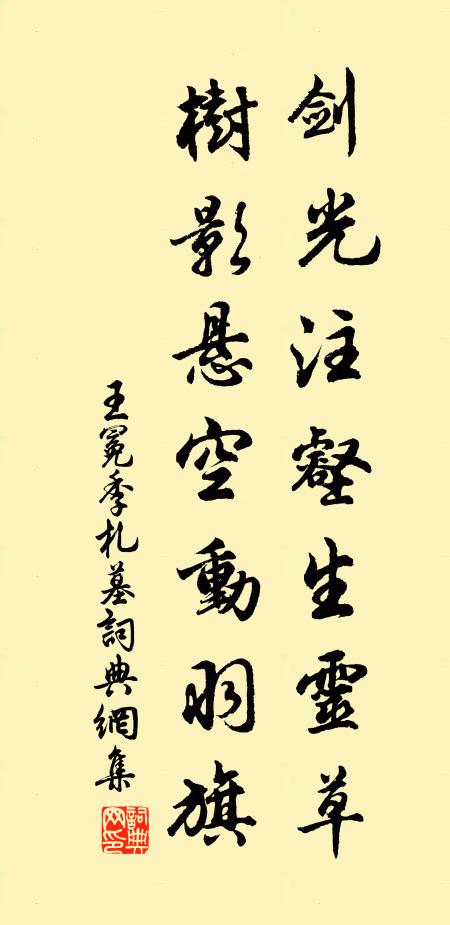 剑光注壑生靈草
樹影悬空動羽旗
王冕季札墓詞典網集
詞典网印